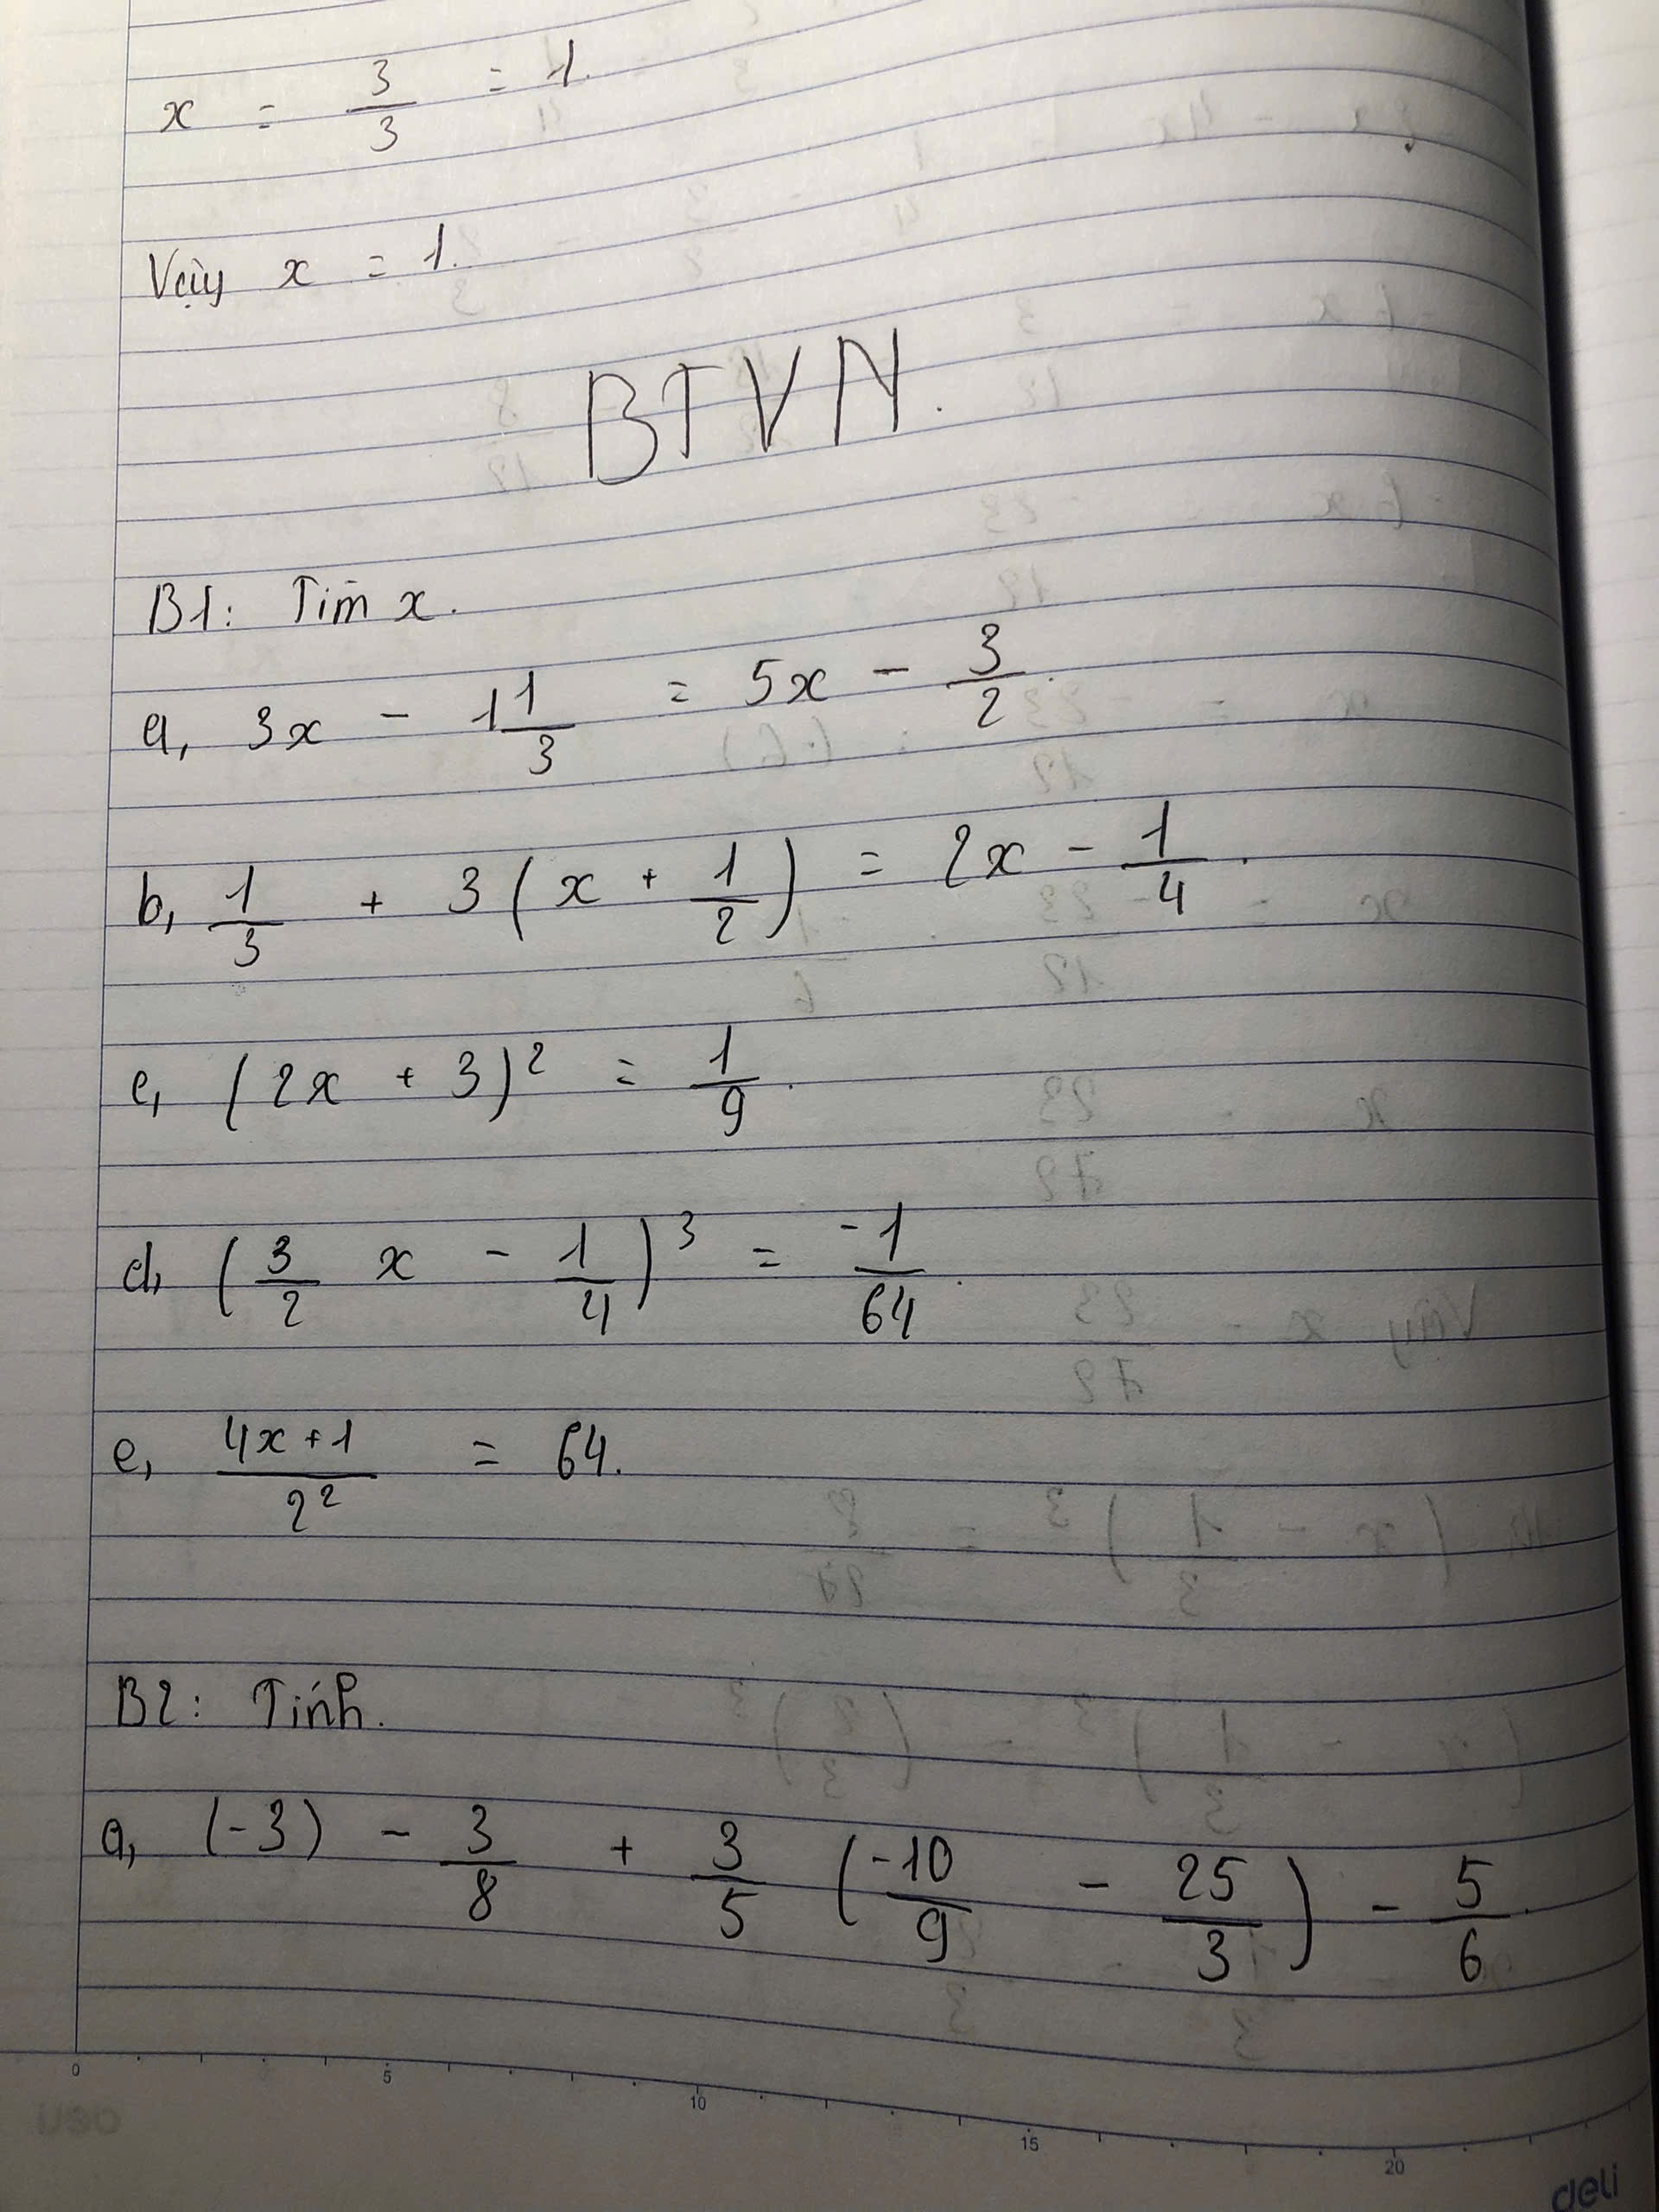 x = 3/3 = 1.
Vậy x = 1.
BTVN.
B1: Tìm x.
a, 3x - 1 1/3 = 5x - 3/2.
b, 1/3 + 3(x + 1/2) = 2x - 1/4.
c, (2x + 3)² = 1/9.
d, (3/2 x - 1/4)³ = -1/64.
e, 4x+1/2² = 64.
B2: Tính.
a, (-3) - 3/8 + 3/5 (-10/9 - 25/3) - 5/6.
0 5 10 15 20
deli